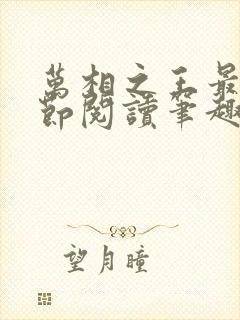 萬相之王最
節閱讀筆趣
望月瞳